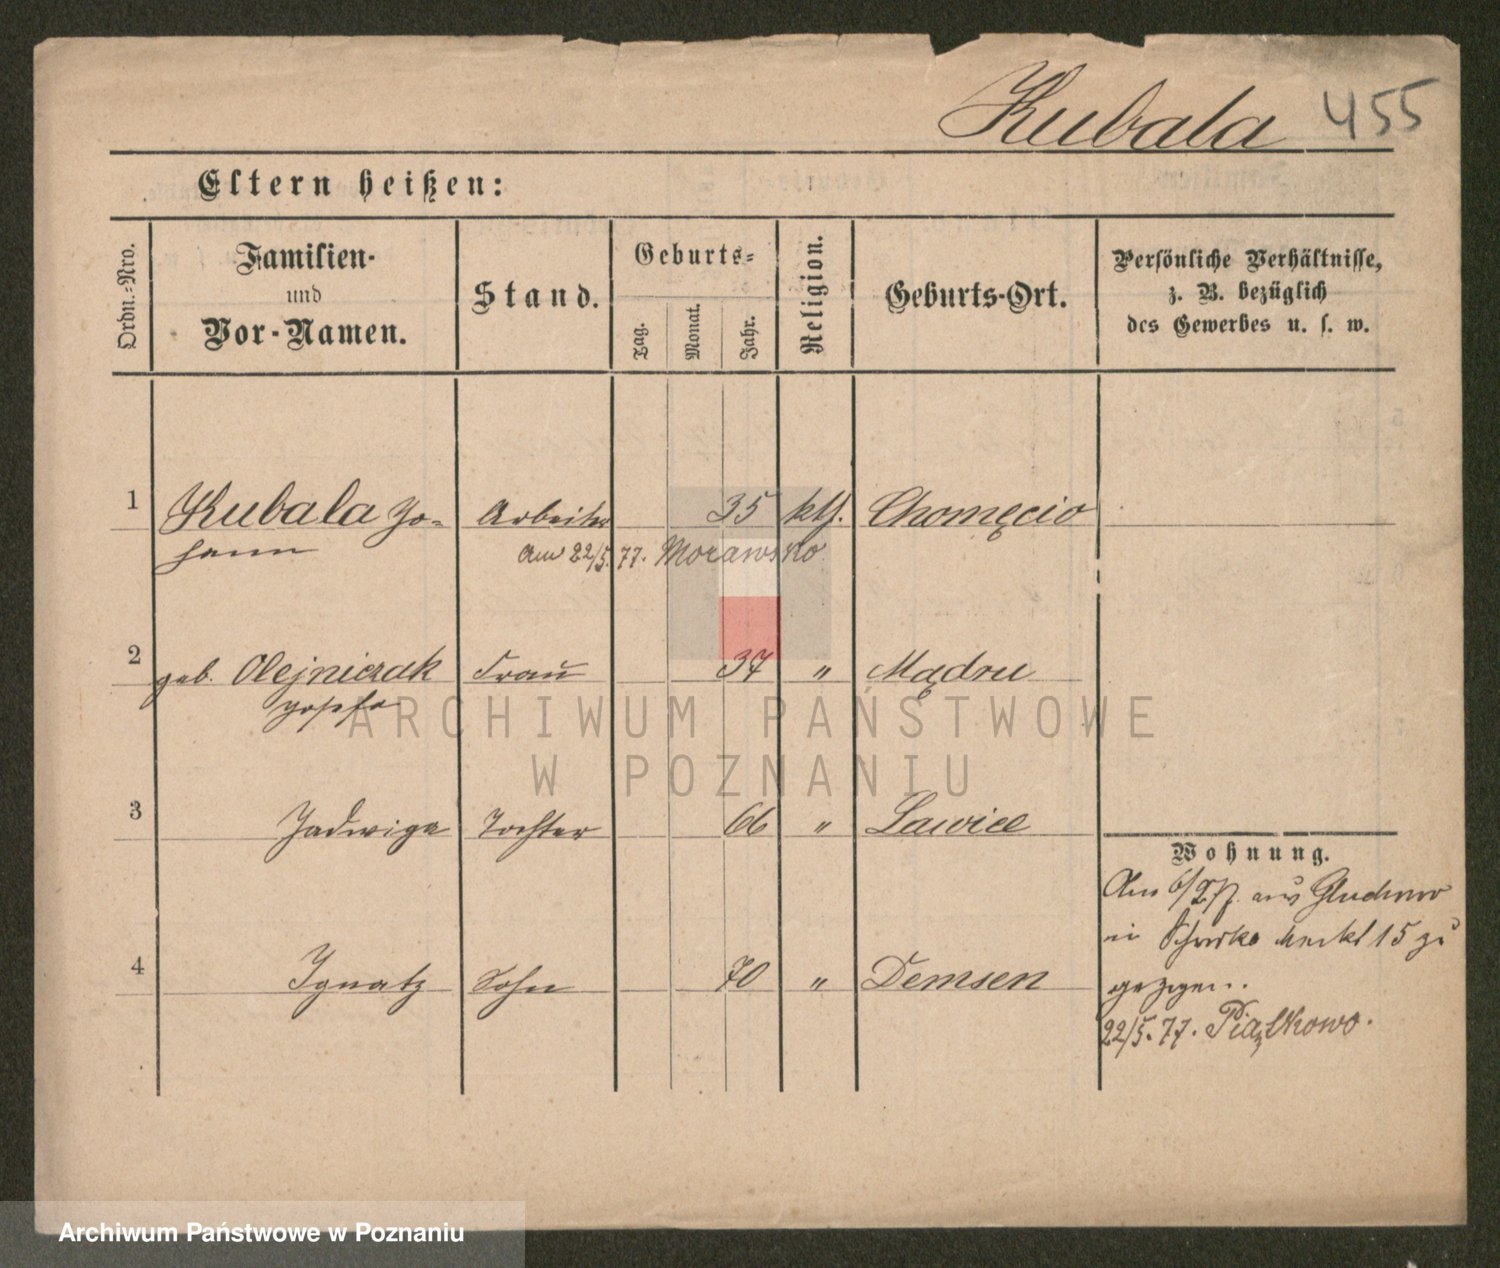 Kubala 455
Eltern heißen:
Ordn.-Nro.
Familien-
und
Vor-Namen.
Stand.
Geburts-
Tag.
Monat.
Jahr.
Religion.
Geburts-Ort.
Persönliche Verhältnisse,
z. B. bezüglich
des Gewerbes u. s. w.
1 Kubala Jo- Arbeiter 35 kth. Chomęcio
hann Am 22/5.77. Morawsko
2 geb. Olejniczak Frau 37 " Mądru
Josefa
3 Jadwiga Tochter 66 " Lawice
Wohnung.
Am aus Gluchowo
in 15 zu
4 Ignatz Sohn 70 " Demsen
gezogen.
22/5.77. Piątkowo.
ARCHIWUM PAŃSTWOWE
W POZNANIU
Archiwum Państwowe w Poznaniu